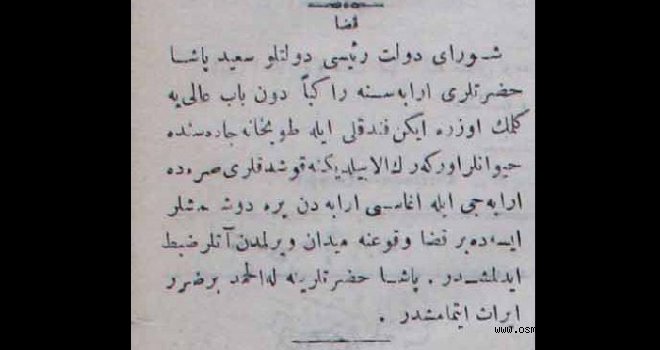 قضا
شورای دولت رئیسی دولتلو سعید پاشا
حضرتلری ارابه‌سنه راکباً دون باب عالی‌یه
کلمك اوزره ایکن فندقلی ایله طوپخانه جاده‌سنده
حیوانلر اورکه‌رك الابیلدیکنه قوشدقلری صره‌ده
ارابه‌جی ایله اغاسی ارابه‌دن یره دوشمشلر
ایسه‌ده بر قضا وقوعنه میدان ویرلمدن آتلر ضبط
ایدلمشدر . پاشا حضرتلرینه له‌الحمد بر ضرر
ایراث ایتمامشدر .
www.osm